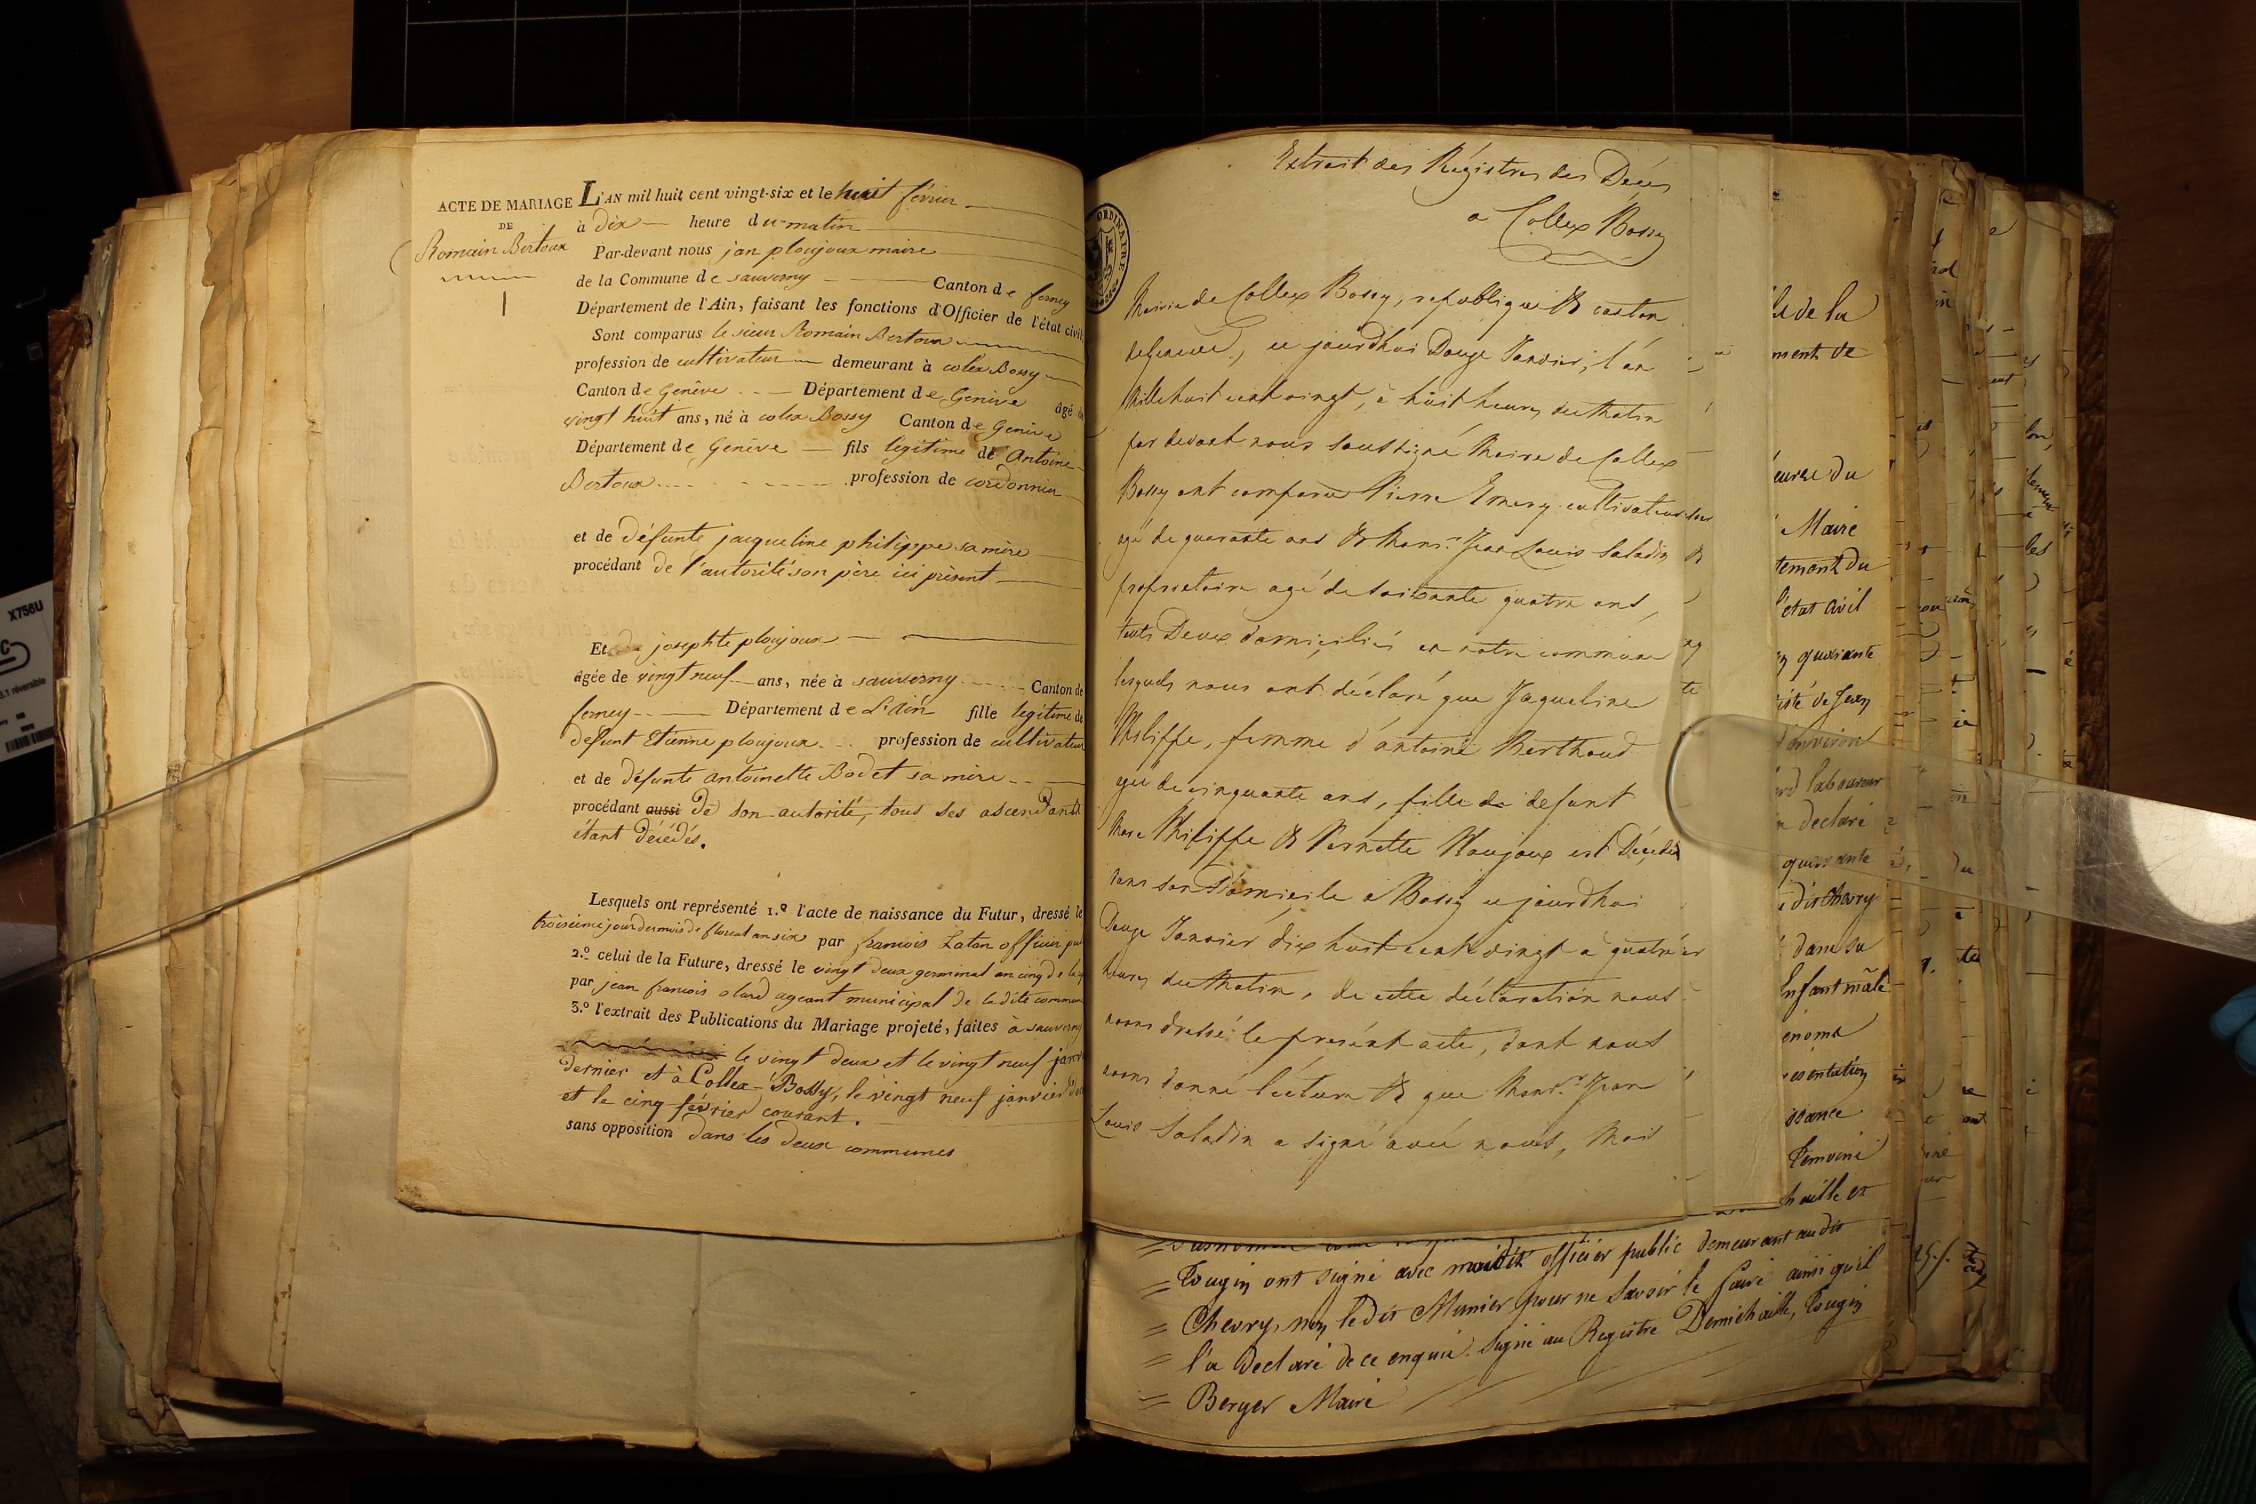 ACTE DE MARIAGE
DE
Romain Bertoux
L'AN mil huit cent vingt-six et le huit février
à dix heure du matin
Par-devant nous jan ploujoux maire
de la Commune de sauverny Canton de ferney
Département de l'Ain, faisant les fonctions d'Officier de l'état civil
Sont comparus le sieur Romain Bertoux
profession de cultivateur demeurant à colex Bossy
Canton de Genêve Département de Genève âgé de
vingt huit ans, né à colex Bossy Canton de Genève
Département de Genève fils legitime de Antoine
Bertoux profession de cordonnier
et de défunte jacqueline philippe sa mère
procédant de l'autorité son père ici présent
Et josephte ploujoux
âgée de vingt neuf ans, née à sauverny Canton de
ferney Département de L'Ain fille legitime de
defunt Etienne ploujoux profession de cultivateur
et de défunte antoinette Bodet sa mère
procédant aussi de son autorité, tous ses ascendants
étant décédés.
Lesquels ont représenté 1.º l'acte de naissance du Futur, dressé le
troisième jour du mois de floreal an six par francois Latan officier
2.º celui de la Future, dressé le vingt deux germinal an cinq de la
par jean francois olard ageant municipal de la dite commune
3.º l'extrait des Publications du Mariage projeté, faites à sauverny
le vingt deux et le vingt neuf janv
dernier et à Collex-Bossy, le vingt neuf janvier
et le cinq février courant.
sans opposition dans les deux communes
ORDINAIRE
Extrait des Régistres des Décès
a Collex Bossy
Mairie de Collex Bossy, republique & canton
de Geneve, ce jourdhui Douze Janvier, l'an
Mille huit cent vingt, à huit heures du Matin
par devant nous soussigné Maire de Collex
Bossy ont comparu Pierre Emery cultivateur
agé de quarante ans & Mons.r Jean Louis Saladin
proprietaire agé de soixante quatre ans,
touts Deux domiciliés en notre commune
lesquels nous ont déclaré que Jaqueline
Philippe, femme d'antoine Berthoud
agée de cinquante ans, fille de defunt
Marc Philippe & Pernette Ploujoux est Décédée
dans son Domicile a Bossy ce jourdhui
Douze Janvier dix huit cent vingt a quatre
heures du Matin, de cette déclaration nous
avons dressé le présent acte, dont nous
avons donné lecture & que Mons.r Jean
Louis Saladin a signé avec nous, Mais
de la
ment de
eure du
Maire
tement du
l'état civil
quarante
té de Jean
d'environ
laboureur
declaré
quarante
dit Chevry
dans sa
Enfant mâle
énoms
ésentation
issance
Temoins
haille et
Tougin ont signé avec moidit officier public demeurant audit
Chevry, non ledit Munier pour ne savoir le faire ainsi qu'il
l'a declaré de ce enquis. Signé au Registre Demichaille, Tougin
Berger Maire
X756U